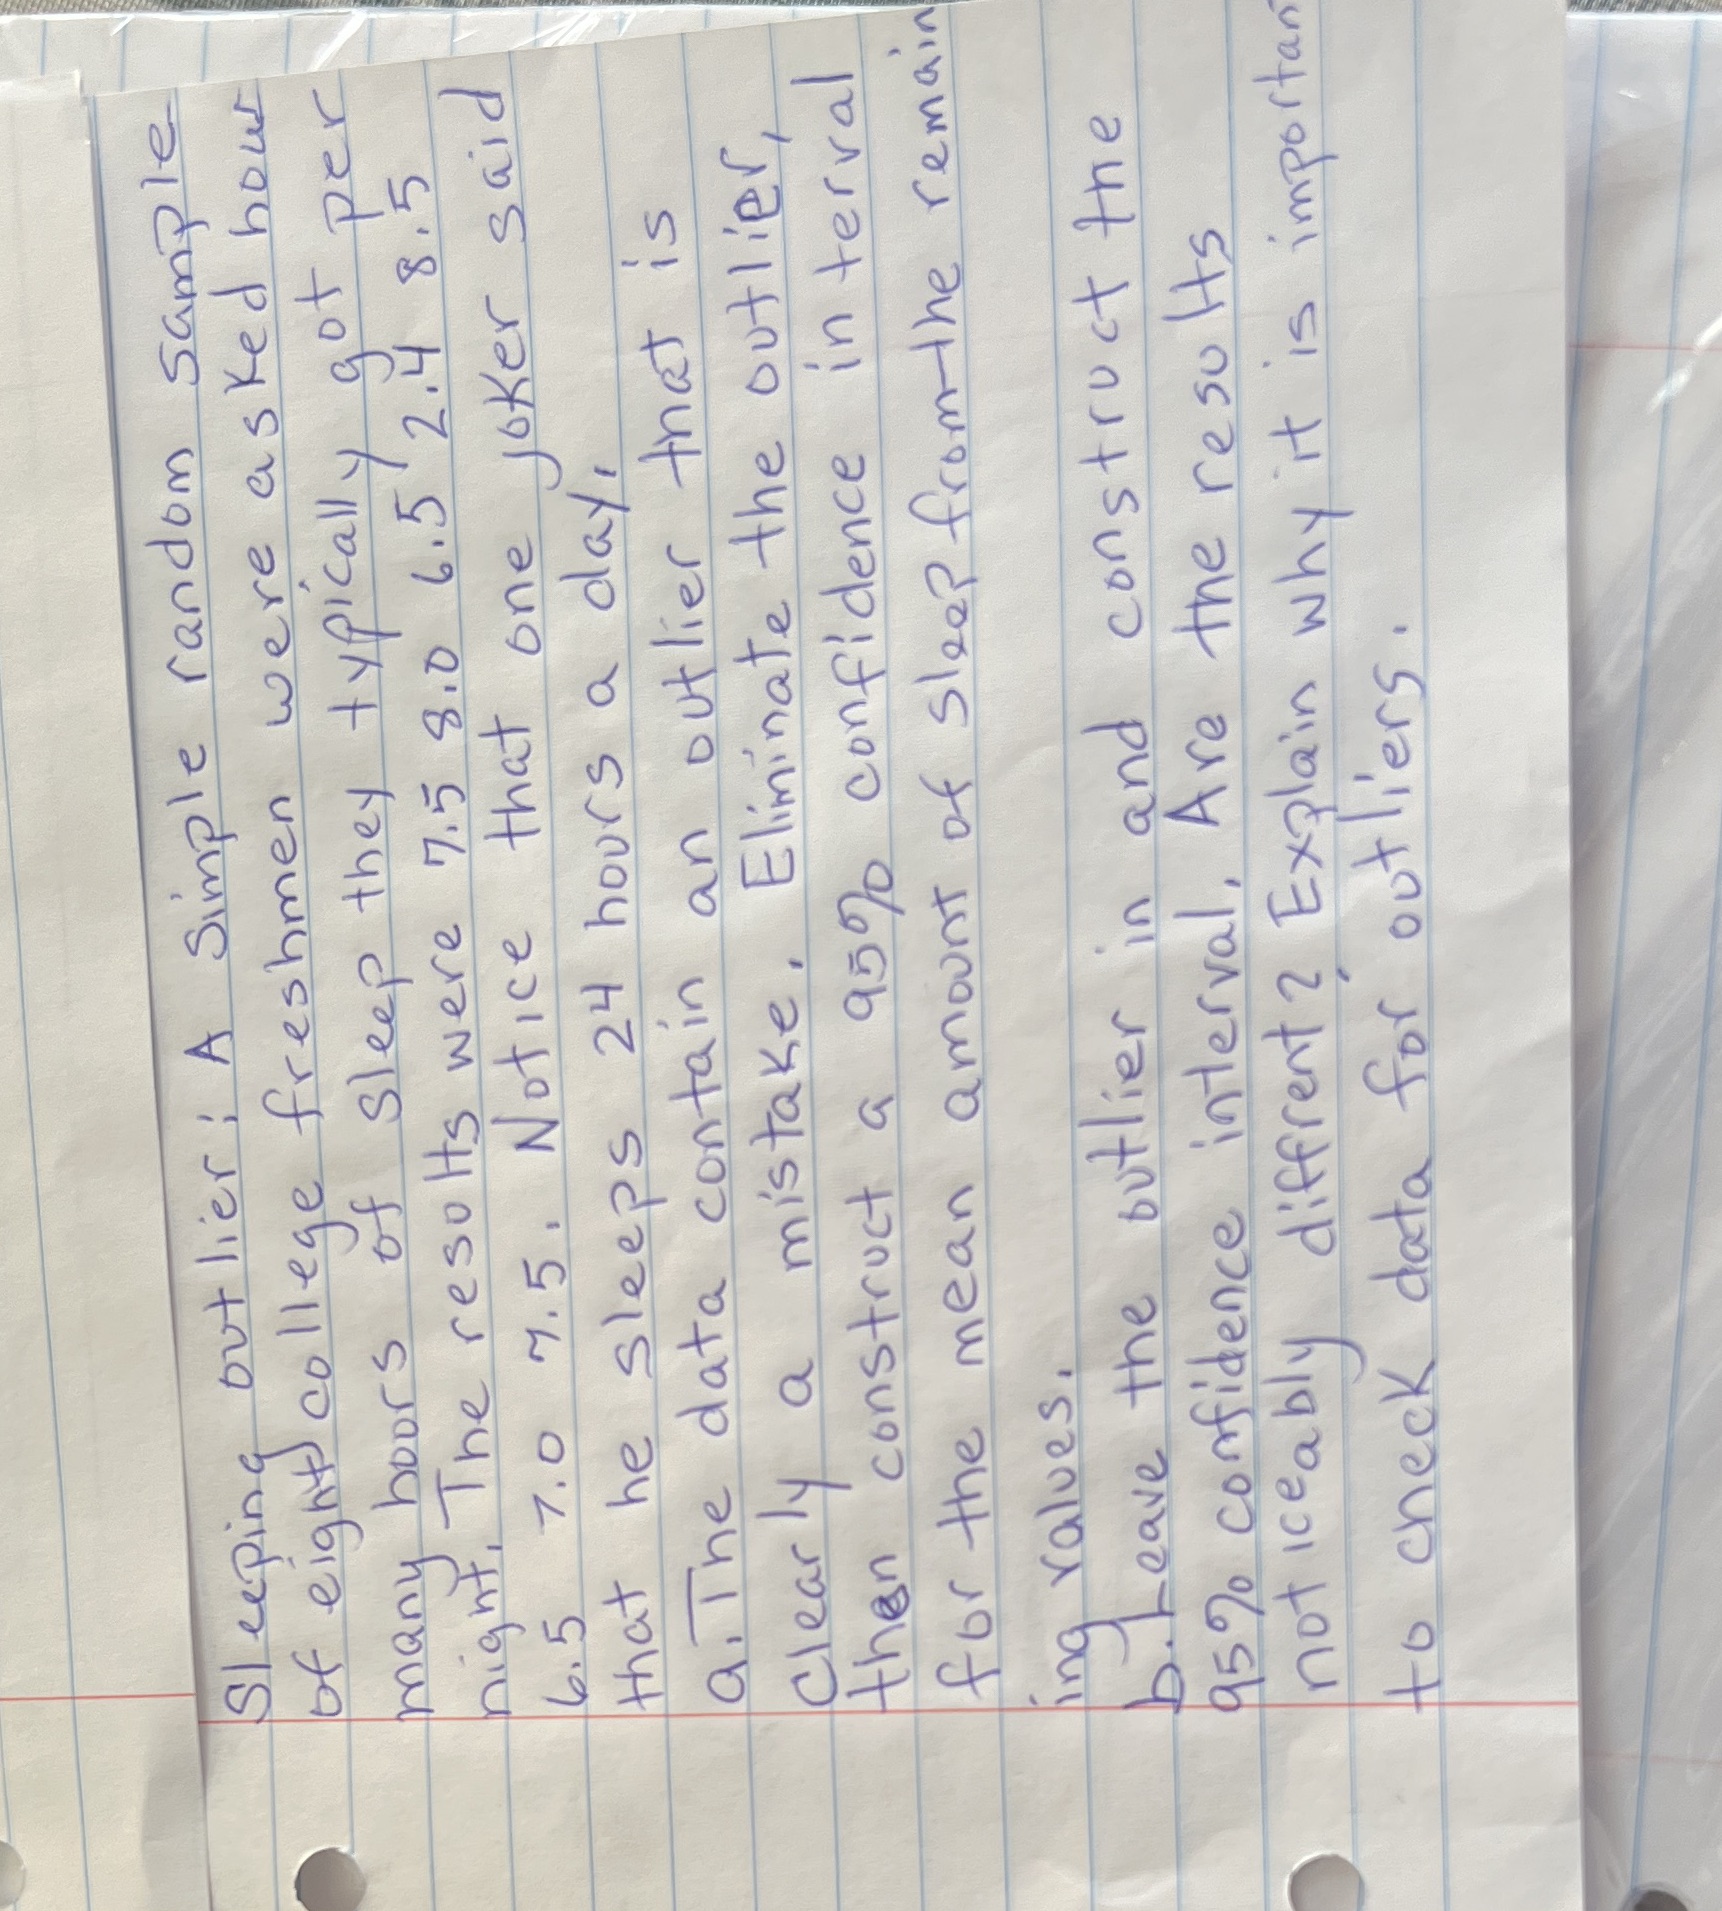 Sleeping outlier: A simple random sample
of eight college freshmen were asked how
many hours of sleep they typically got per
night. The results were 7.5 8.0 6.5 2.4 8.5
6.5 7.0 7.5. Notice that one joker said
that he sleeps 24 hours a day.
a. The data contain an outlier that is
Clearly a mistake. Eliminate the outlier,
then construct a 95% confidence interval
for the mean amount of sleep from the remain
ing values.
b. Leave the outlier in and construct the
95% confidence interval. Are the results
noticeably diffrent? Explain why it is important
to check data for outliers.